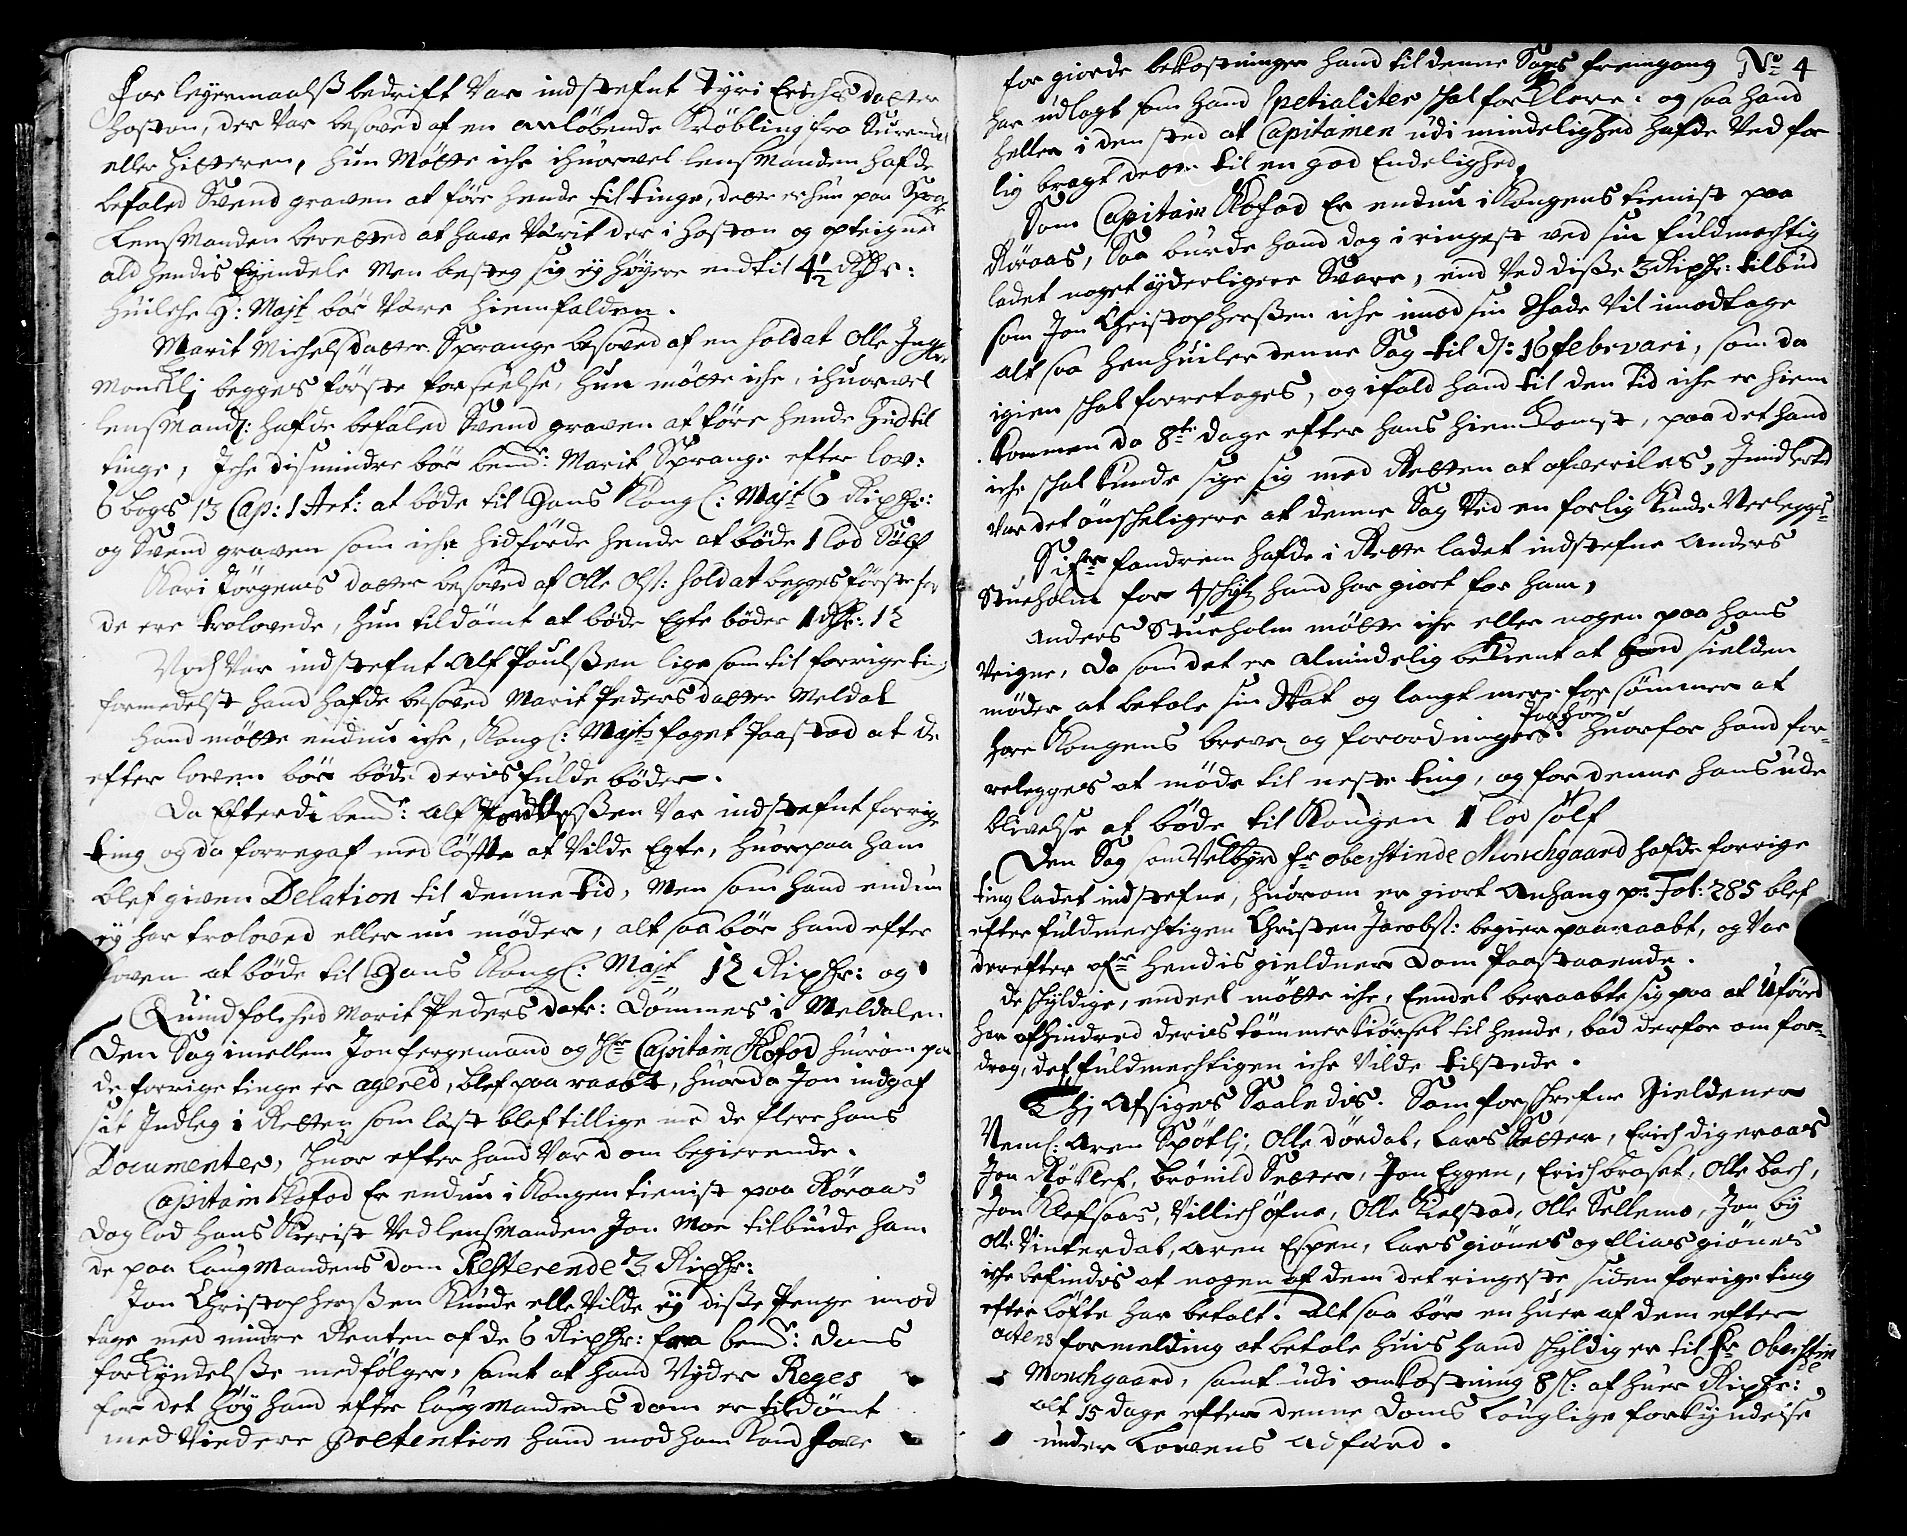 For leyermaalß bedrift var indstefnt Jyri Erichs datter
hoston, der var besoved af en omløbende Krøbling fra Surend
eller hitteren, hun møtte iche ihuorvel lensmanden hafde
befaled Svend graven at føre hende til tinge, dette er hun paa
Lensmanden beretted at have værit der i hoston og opteigned
ald hendis Eyendele men besteg sig ey høyere end til 4½ Rdr:
huilche H: Majt bør være hiemfalden.
Marit Michelsdatter Sprange besoved af en soldat Olle
Monsli begges første forseelse, hun møtte iche, ihuorvel
lensmand: hafde befaled Svend graven at føre hende hid til
tinge, Iche dismindre bør bemte: Marit Sprange efter lov:
6 bogs 13 Cap: 1 Art: at bøde til Hans Kongl: Majt 6 Rixdr:
og Svend graven som iche hidførde hende at bøde 1 lod Sølf
Kari Jørgens datter besoved af Olle Ols: soldat begges første for
de ere trolovede, hun tildømt at bøde Egte bøder 1 Rdr: 12
Noch var indstefnt Alf Poulsßen lige som til forrige ting
formedelst hand hafde besoved Marit Peders datter Meldal
hand møtte endnu iche, Kongl: Majts foget paastod at de
efter loven bør bøde deris fulde bøder.
Da Efterdi bemte: Alf Poulsßen var indstefnt forrige
ting og da forregaf med løfte at vilde Egte, huorpaa ham
blef given Delation til denne tid, men som hand endnu
ey har troloved eller nu møder, alt saa bør hand efter
loven at bøde til Hans Kongl: Majt 12 Rixdr: og
Quindfolched Marit Peders datr: dømmes i Meldalen
Den Sag imellem Jon fergemand og Hr Capitain Kofod huorom paa
de forrige tinge er agered, blef paaraabt, huor da Jon indgaf
sit Indleg i Retten som læst blef tillige med de flere hans
Documenter, huor efter hand var dom begierende.
Capitain Kofod Er endnu i Kongens tieniste paa Røraas
dog lod hans Kierist ved lensmanden Jon Moe tilbiude ham
de paa laugmandens dom Resterende 3 Rixdr:
Jon Christophersßen Kunde elle vilde ey disße Penge imod
tage med mindre Renten af de 6 Rixdr: fra bemte: doms
forkyndelsße medfølger, samt at hand nyder Reges
for det høy hand efter laugmandens dom er tildømt
med videre Pretention hand mod ham Kand have
for giorde bekostninger hand til denne Sags fremgang No 4
har udlagt som hand Spetialiter skal forklare. og saa hand
heller i den sted at Capitainen udi mindelighed hafde ved for
lig bragt dette til en god Endelighed,
Som Capitain Kofod Er endnu i Kongens tieniste paa
Røraas, Saa burde hand dog i ringest ved sin fuldmechtig
ladet noget yderligere Svare, end ved disße 3 Rixdr: tilbud
som Jon Christophersßen iche imod sin skade vil imodtage
alt saa henhuiler denne Sag til d: 16 februari, som da
igien skal forretages, og ifald hand til den tid iche er hiem
kommen da 8te dage efter hans hiemkomst, paa det hand
iche skal kunde sige sig med Retten at ofveriles, Imidlertid
var det ønskeligere at denne Sag ved en forlig Kunde Verlegges
Sr fandrem hafde i Rette ladet indstefne Anders
Stueholm for 4 hand har giort for ham,
Anders Stueholm møtte iche eller nogen paa hans
Veigne, da som det er almindelig bekient at hand sielden
møder at betale sin skat og langt mere forsømmer at
paahøre
høre Kongens breve og forordninger. huorfor hand for-
relegges at møde til neste ting, og for denne hans ude
blivelse at bøde til Kongen 1 lod sølf
Den Sag som Velbyrd Fr oberstinde Monchgaard hafde forrige
ting ladet indstefne, huorom er giort Anhang p: Fol: 285 blef
efter fuldmechtigen Christen Jacobs: begier paaraabt, og var
derefter ofr hendis gieldner dom paastaaende.
de skyldige, endeel møtte iche, Eendel beraabte sig paa at Uføred
har afhindred deris tømmerkiørsel til hende, bad derfor om for-
drag, det fuldmechtigen iche vilde tilstede.
Thj Afsiges Saaledis. Samforskrefne Gieldener
Neml: Aren Spøtlj, Olle dørdal, Lars Sætter, Erich digeraas
Jon Røklef, Brønild Sætter, Jon Eggen, Erich braset, Olle bach,
Jon Klefsaas, Villich øfne, Olle Kielstad, Olle Sellemo, Jon by
Olle Vinterdal, Aren Espen, Lars giønes og Elias giønes
iche befindis at nogen af dem det ringeste siden forrige ting
efter løfte har betalt. Alt saa bør en huer af dem efter
actens formelding at betale huis hand skyldig er til Fr Oberstin
Monchgaard, samt udi omkostning 8 s: af huer Rixdr:
alt 15 dage efter denne doms lauglige forkyndelse
under Lovens adfærd.